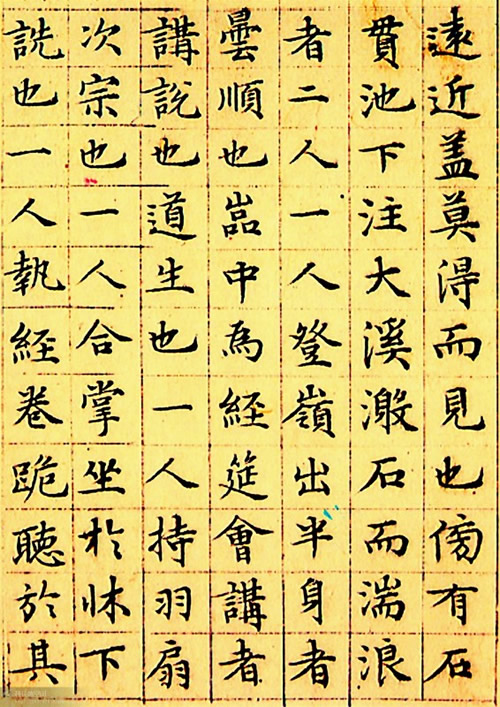 遠近盖莫淂而見也傍有石
貫池下注大溪激石而湍浪
者二人一人登嶺出半身者
曇順也嵓中為經筵會講者
講說也道生也一人持羽扇
次宗也一人合掌坐於牀下
詵也一人執經卷跪聽於其